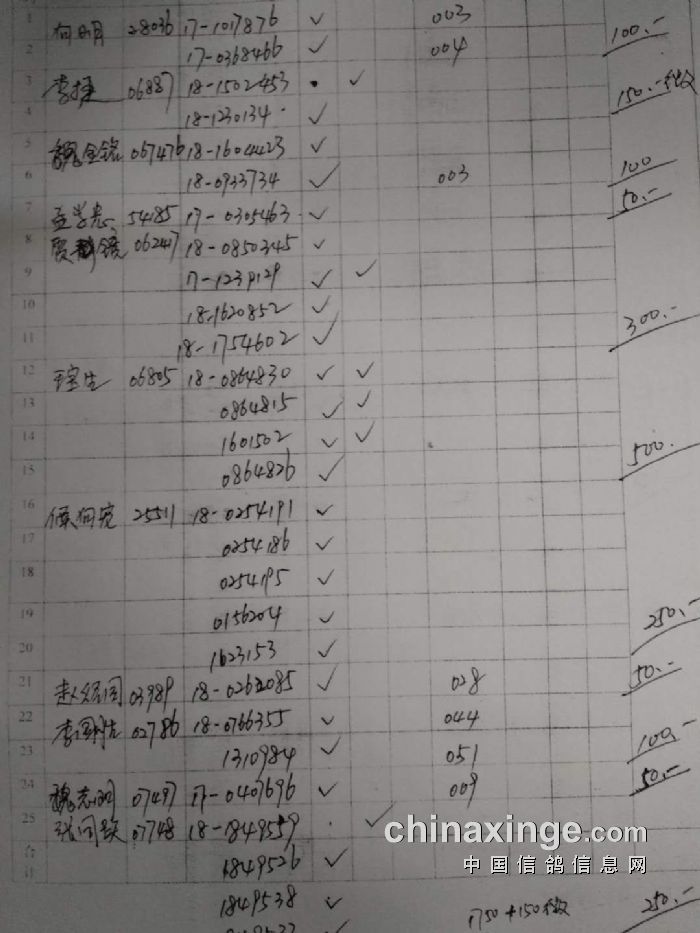 1 向明 28036 17-1017876 ✓ 003
2 17-0368466 ✓ 004 100.-
3 李捷 06887 18-1502453 • ✓
4 18-1230134 ✓ 150.-
5 魏金铭 067476 18-1604423 ✓
6 18-0933734 ✓ 003 100
7 孟学忠 54185 17-0305463 ✓ 50.-
8 贾 06247 18-0850345 ✓
9 17-1239129 ✓ ✓
10 18-1620852 ✓
11 18-1754602 ✓ 300.-
12 06805 18-0864830 ✓ ✓
13 0864815 ✓ ✓
14 1601502 ✓ ✓
15 0864826 ✓ 500.
16 25511 18-0254191 ✓
17 0254186 ✓
18 0254195 ✓
19 0156204 ✓
20 1623153 ✓ 250.-
21 03989 18-0262085 ✓ 028 50.-
22 02786 18-0766355 ✓ 044
23 1310984 ✓ 051 100.-
24 魏志明 07497 17-0407696 ✓ 009 50.-
25 07748 18-1849559 · ✓
chinaxinge.com
合计 1849526 ✓
中国信鸽信息网
1849538 ✓ 1750+150 250.-